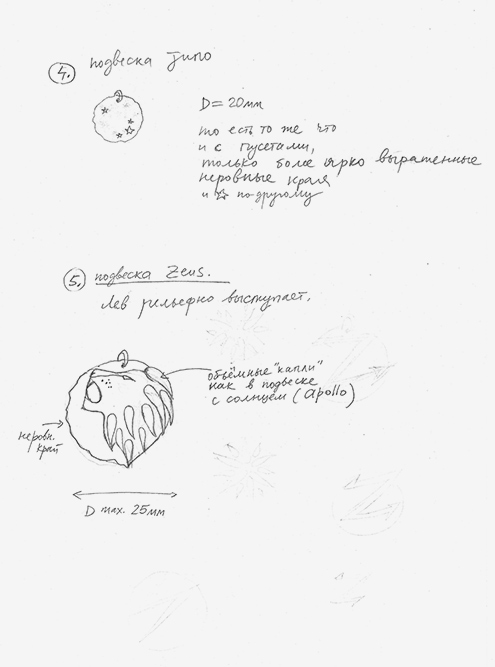 4. подвеска Juno
D = 20мм
то есть то же что
и с пусетами,
только более ярко выраженные
неровные края
и ☆ по другому
5. подвеска Zeus.
Лев рельефно выступает.
объёмные "капли"
как в подвеске
с солнцем (Apollo)
неровн.
край
D max. 25мм